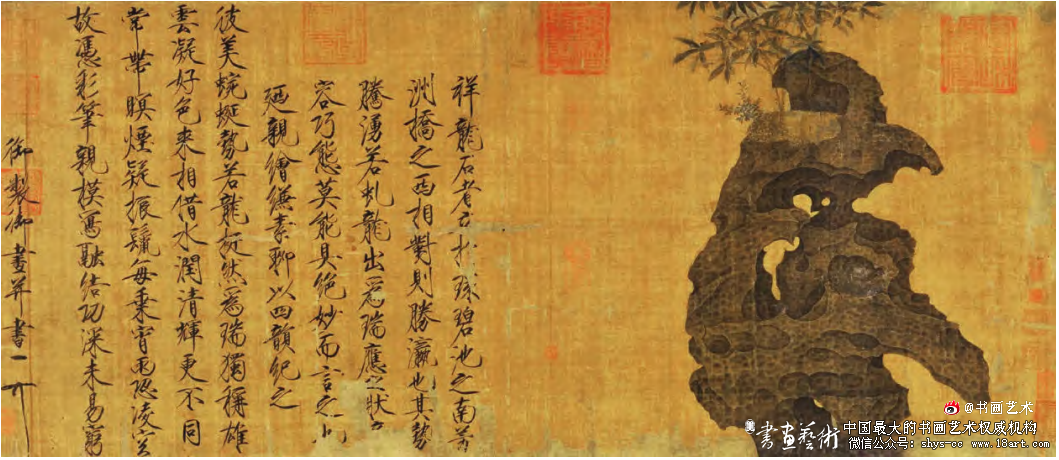 祥龍石者立於環碧池之南芳
洲橋之西相對則勝瀛也其勢
騰湧若虬龍出為瑞應之狀奇
容巧態莫能具絕妙而言之也
廼親繪縑素聊以四韻紀之
彼美蜿蜒勢若龍挺然為瑞獨稱雄
雲凝好色來相借水潤清輝更不同
常帶暝煙疑振鬣每乘宵雨恐凌空
故憑彩筆親模寫融結功深未易窮
御製御畫并書
@书画艺术
書畫藝術
中国最大的书画艺术权威机构
微信公众号: shys-cc www.18art.com